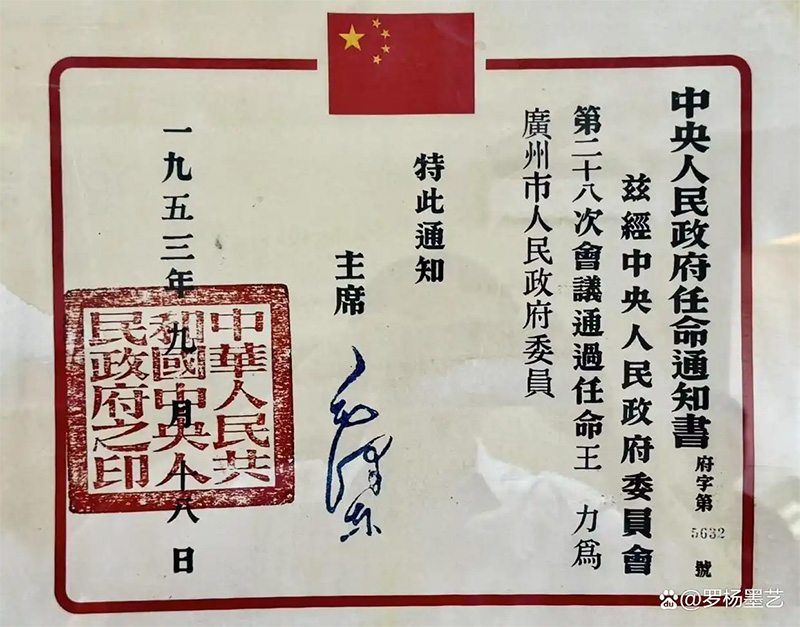 中央人民政府任命通知書
府字第5632號
茲經中央人民政府委員會
第二十八次會議通過任命王 力爲
廣州市人民政府委員
特此通知
主席
毛澤東
一九五三年九月十八日
中華人民共
和國中央人
民政府之印
@罗杨墨艺